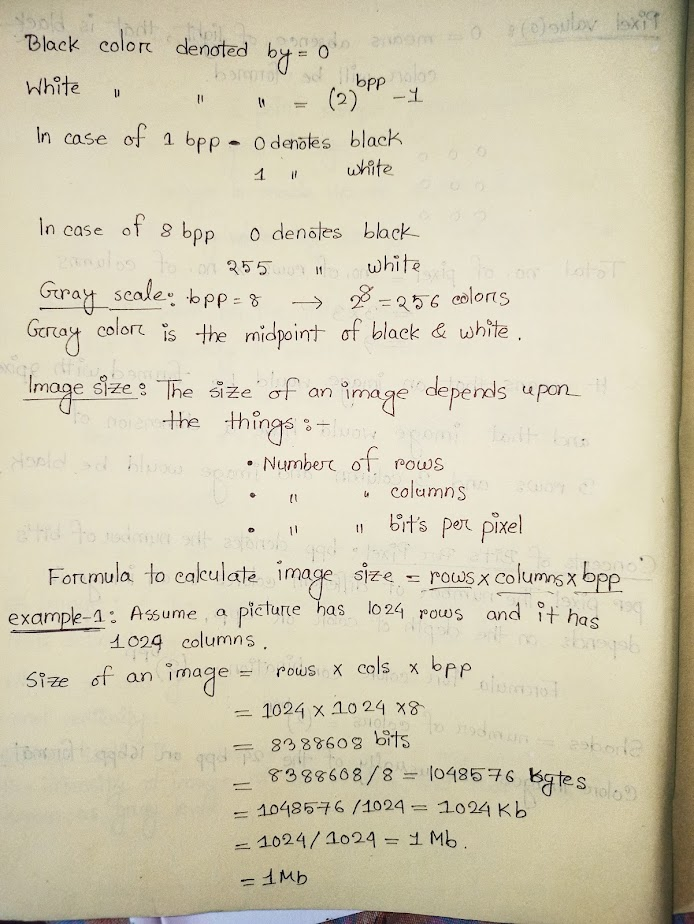 Black color denoted by = 0
White " " " = (2)^bpp - 1
In case of 1 bpp - 0 denotes black
1 " white
In case of 8 bpp 0 denotes black
255 " white
Gray scale: bpp = 8 → 2^8 = 256 colors
Gray color is the midpoint of black & white.
Image size: The size of an image depends upon
the things :-
• Number of rows
• " " columns
• " " bit's per pixel
Formula to calculate image size = rows x columns x bpp
example-1: Assume a picture has 1024 rows and it has
1024 columns.
Size of an image = rows x cols x bpp
= 1024 x 1024 x8
= 8388608 bits
= 8388608/8 = 1048576 bytes
= 1048576/1024 = 1024 Kb
= 1024/1024 = 1 Mb.
= 1Mb